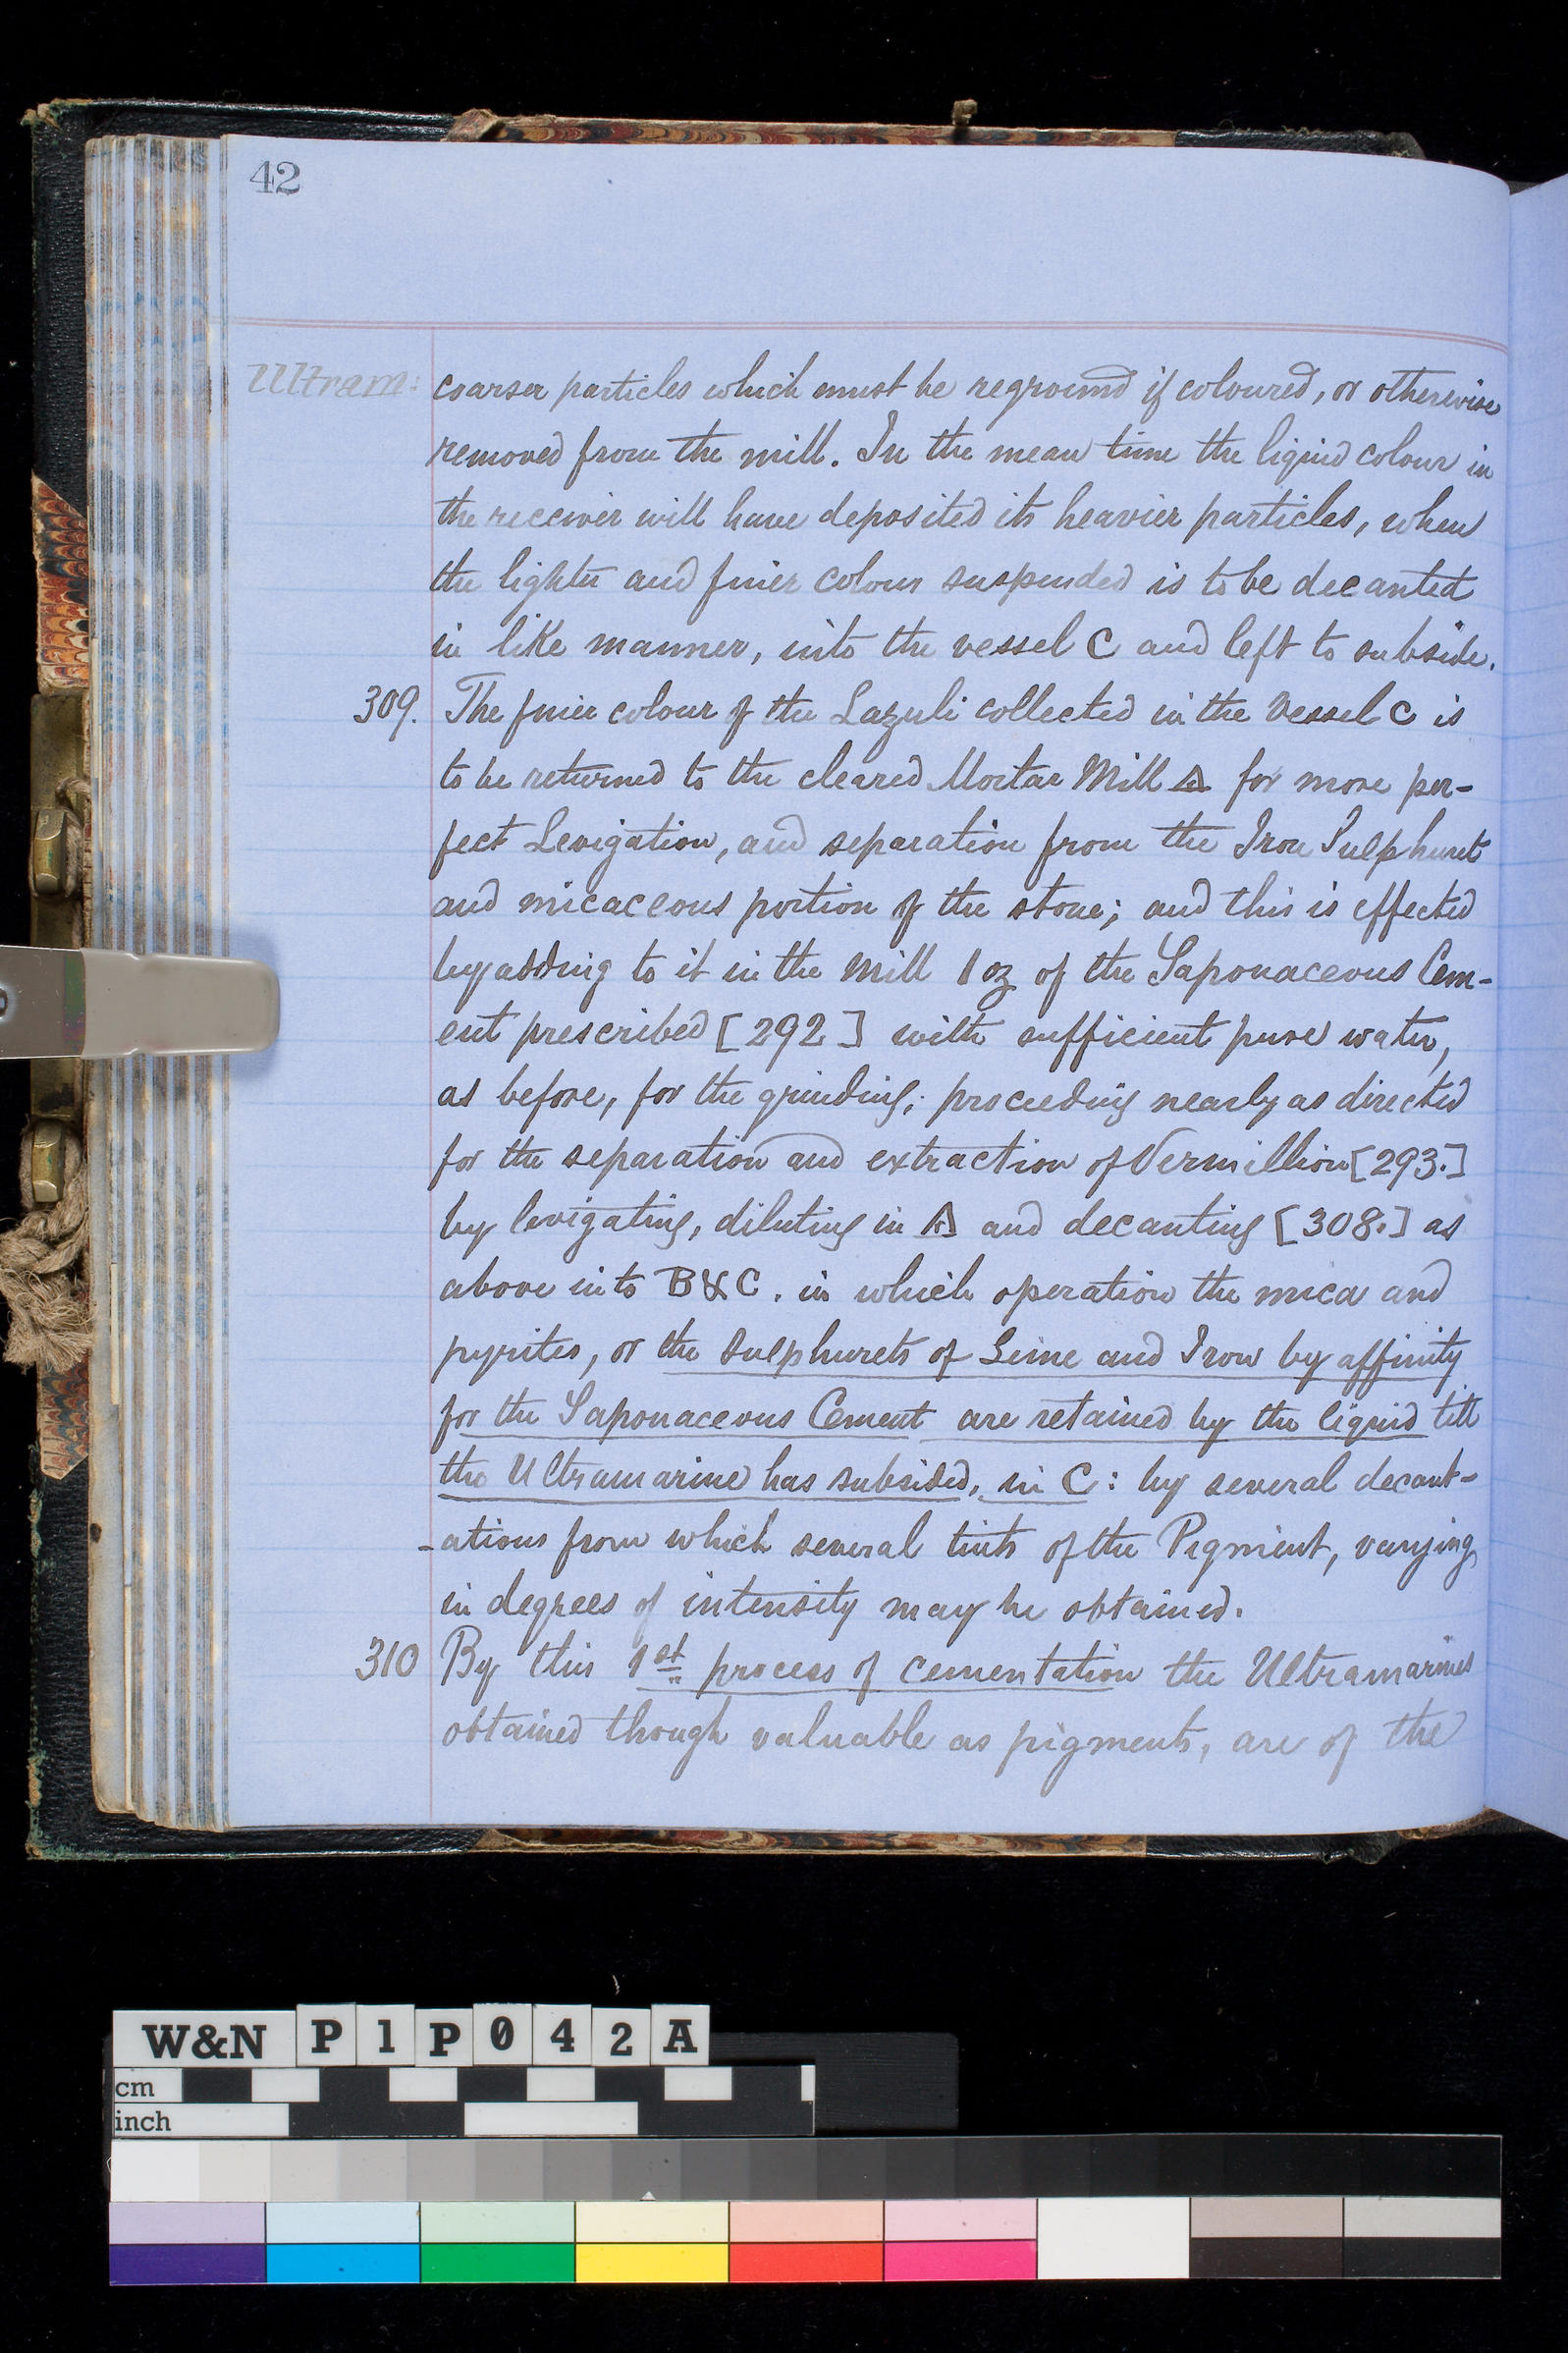 42
Ultram: coarser particles which must be reground if coloured, or otherwise
removed from the mill. In the mean time the liquid colour in
the receiver will have deposited its heavier particles, when
the lighter and finer colour suspended is to be decanted
in like manner, into the vessel C and left to subside.
309. The finer colour of the Lazuli collected in the Vessel C is
to be returned to the cleared Mortar Mill A for more per-
fect Levigation, and separation from the Iron Sulphuret
and micaceous portion of the stone; and this is effected
by adding to it in the Mill 1 oz of the Saponaceous Cem-
ent prescribed [292] with sufficient pure water,
as before, for the grinding; proceeding nearly as directed
for the separation and extraction of Vermillion [293.]
by levigating, diluting in A and decanting [308.] as
above into B & C. in which operation the mica and
pyrites, or the Sulphurets of Lime and Iron by affinity
for the Saponaceous Cement are retained by the liquid till
the Ultramarine has subsided, in C: by several decant-
-ations from which several tints of the Pigment, varying
in degrees of intensity may be obtained.
310 By this 1st process of cementation the Ultramarines
obtained though valuable as pigments, are of the
W&N P1P042A
cm
inch